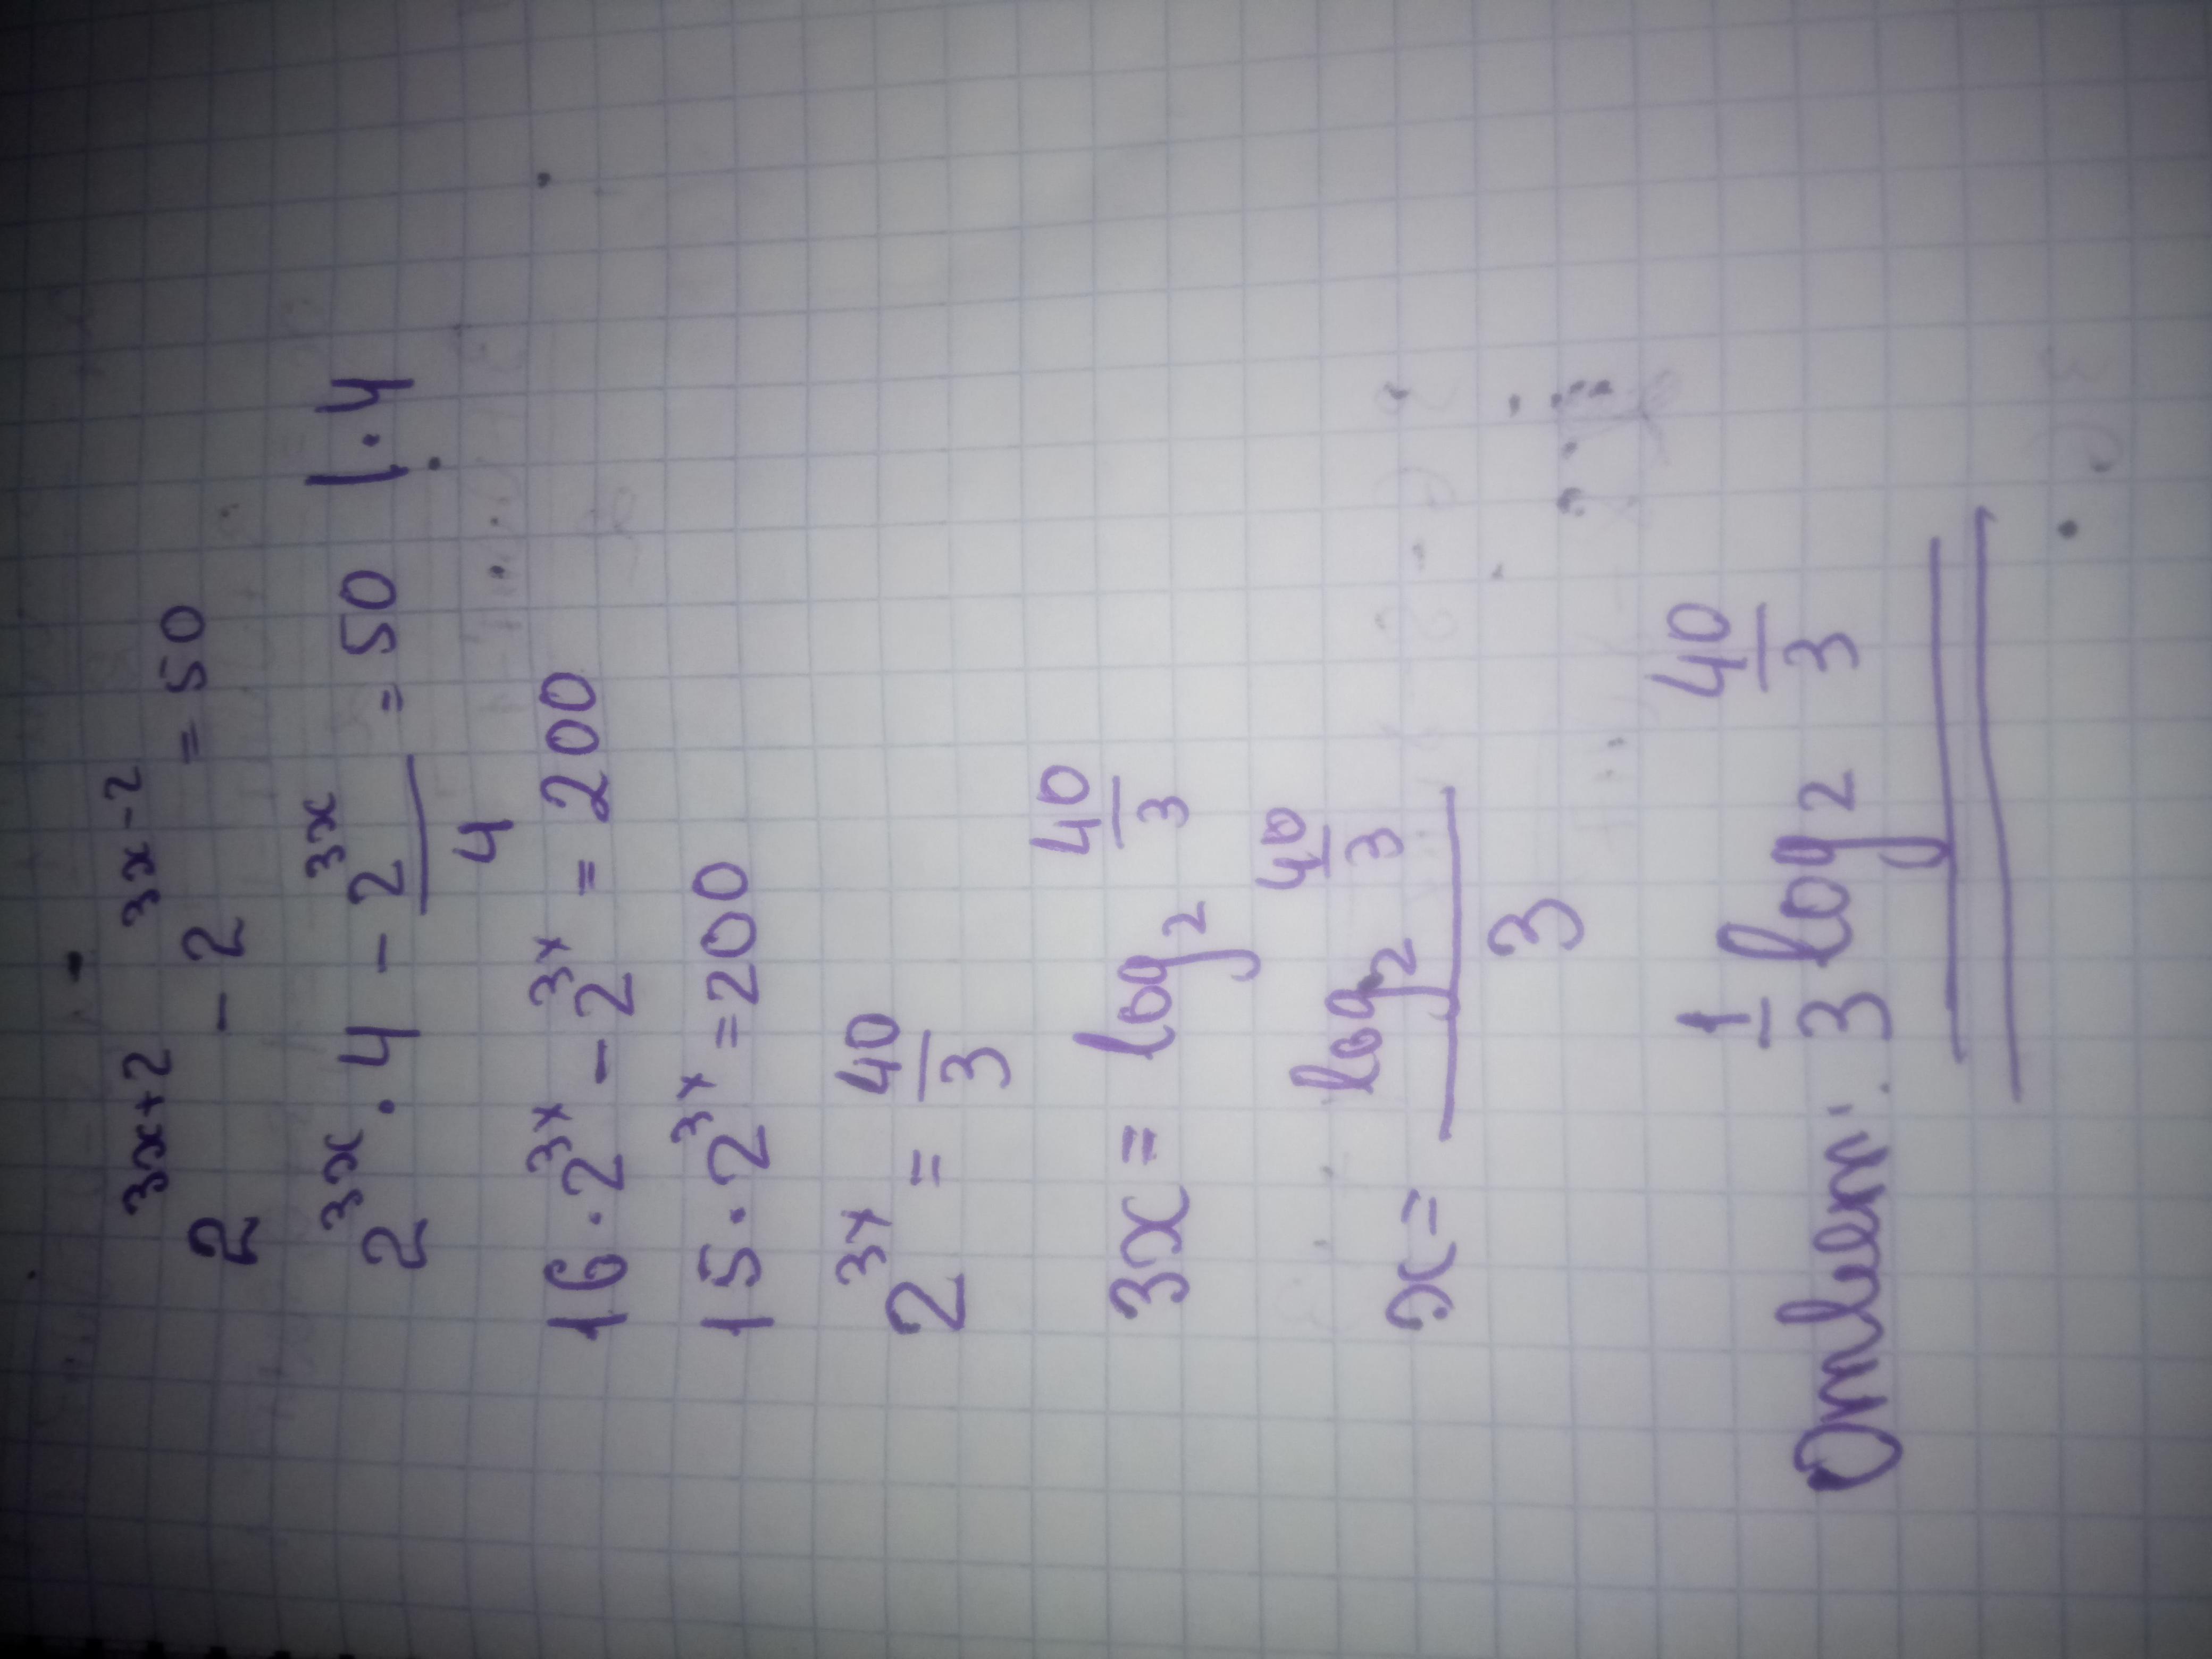 2^{3x+2} - 2^{3x-2} = 50
2^{3x} · 4 - \frac{2^{3x}}{4} = 50 | · 4
16 · 2^{3x} - 2^{3x} = 200
15 · 2^{3x} = 200
2^{3x} = \frac{40}{3}
3x = log_2 \frac{40}{3}
x = \frac{log_2 \frac{40}{3}}{3}
Ответ: \frac{1}{3} log_2 \frac{40}{3}